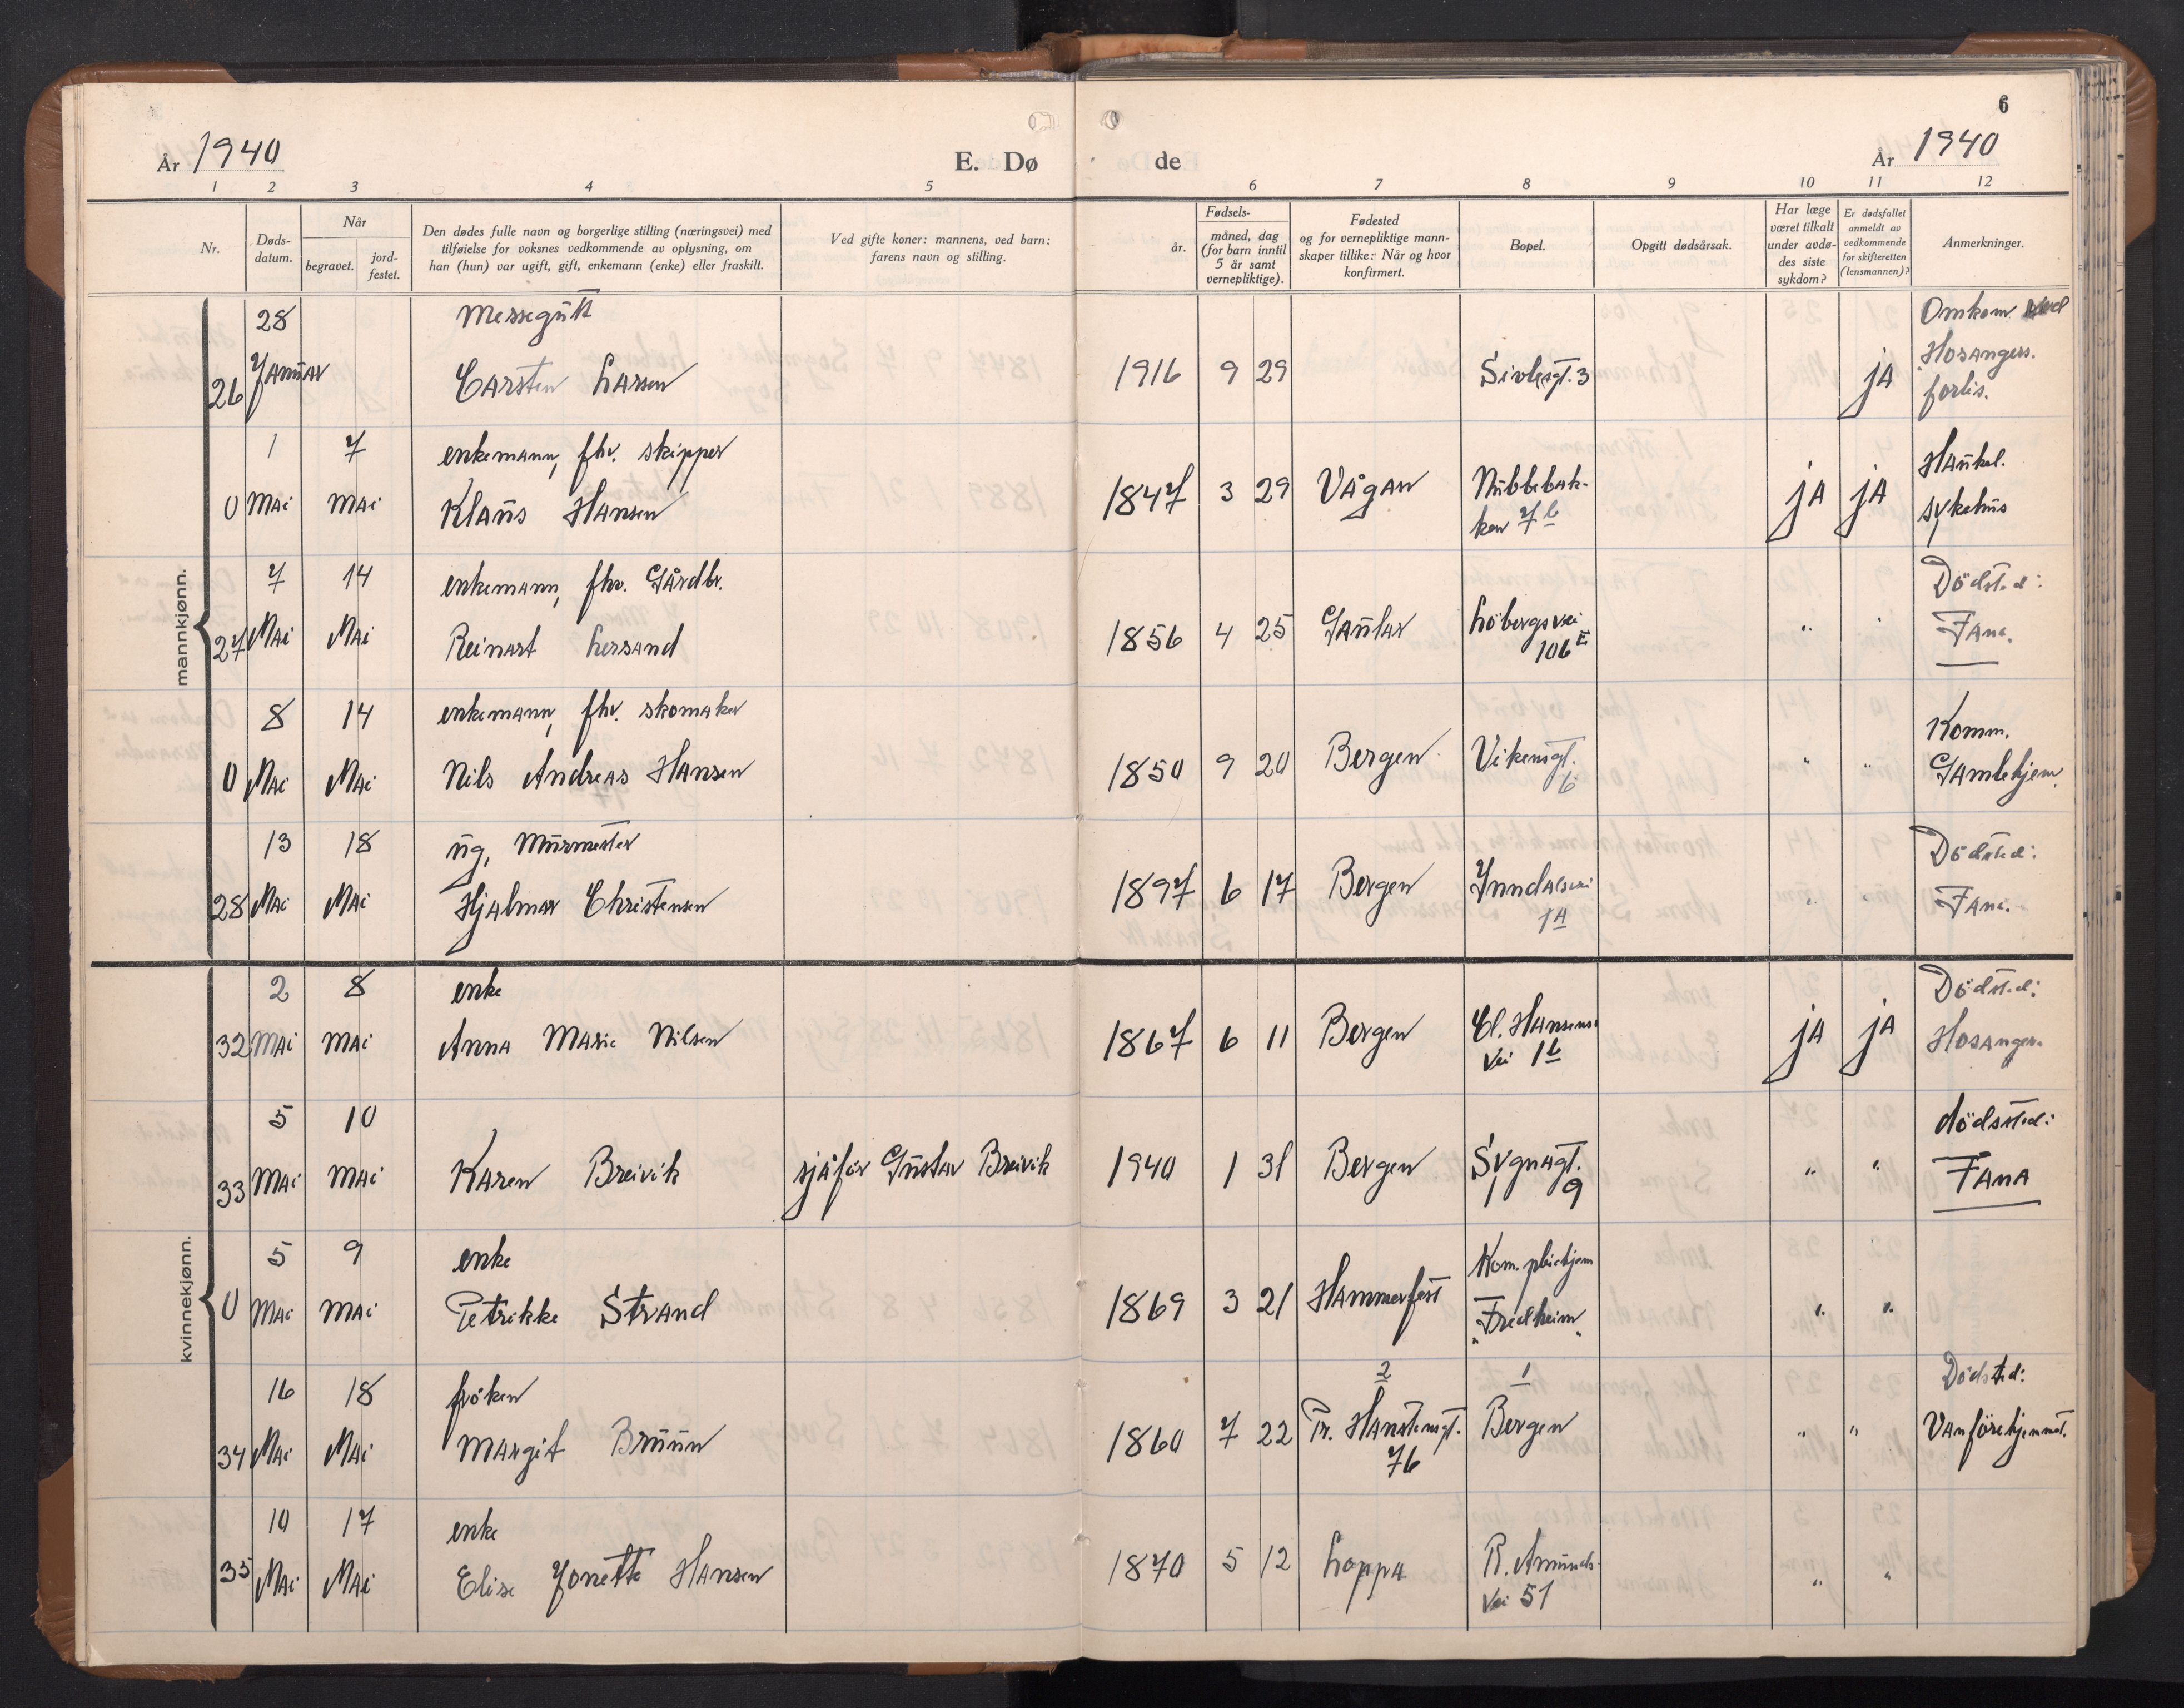 6
År 1940
E. Dø
de
År 1940
1 2 3 4 5 6 7 8 9 10 11 12
Nr.
Døds-
datum.
Når
begravet.
jord-
festet.
Den dødes fulle navn og borgerlige stilling (næringsvei) med
tilføielse for voksnes vedkommende av oplysning, om
han (hun) var ugift, gift, enkemann (enke) eller fraskilt.
Ved gifte koner: mannens, ved barn:
farens navn og stilling.
Fødsels-
år.
måned, dag
(for barn inntil
5 år samt
vernepliktige).
Fødested
og for vernepliktige mann-
skaper tillike: Når og hvor
konfirmert.
Bopel.
Opgitt dødsårsak.
Har læge
været tilkalt
under avdø-
des siste
sykdom?
Er dødsfallet
anmeldt av
vedkommende
for skifteretten
(lensmannen)?
Anmerkninger.
mannkjønn.
28 Messegutt Omkom ved
26 Januar Carsten Larsen 1916 9 29 Sivlesgt. 3 ja Hosangers.
forlis.
1 7 enkemann, fhv. skipper Haukel.
0 Mai Mai Klaus Hansen 1847 3 29 Vågan Nubbebak-
ken 7b ja ja sykehus
7 14 enkemann, fhv. Gårdbr. Dödsted:
27 Mai Mai Reinart Lersand 1856 4 25 Gaular Löbergsvei
106 II " " Fana.
8 14 enkemann, fhv. skomaker Komm.
0 Mai Mai Nils Andreas Hansen 1850 9 20 Bergen Vikensgt.
6 " " Gamlehjem.
13 18 ug, Murmester Dödsted:
28 Mai Mai Hjalmar Christensen 1897 6 17 Bergen Inndalsvei
1A " " Fana.
kvinnekjønn.
2 8 enke Dödsted:
32 Mai Mai Anna Marie Nilsen 1867 6 11 Bergen Cl. Hansens
vei 1b ja ja Hosanger.
5 10 dödsted:
33 Mai Mai Karen Breivik sjåför Gustav Breivik 1940 1 31 Bergen Sygnagt.
9 " " Fana
5 9 enke Kom. pleiehjem
0 Mai Mai Petrikke Strand 1869 3 21 Hammerfest "Fredheim" " "
16 18 fröken 2 1 Dödsted:
34 Mai Mai Margit Bruun 1860 7 22 Pr. Hansteensgt.
76 Bergen " " Vanförehjemmet.
10 17 enke
35 Mai Mai Elise Jonette Hansen 1870 5 12 Loppa R. Amunds.
vei 51 " "